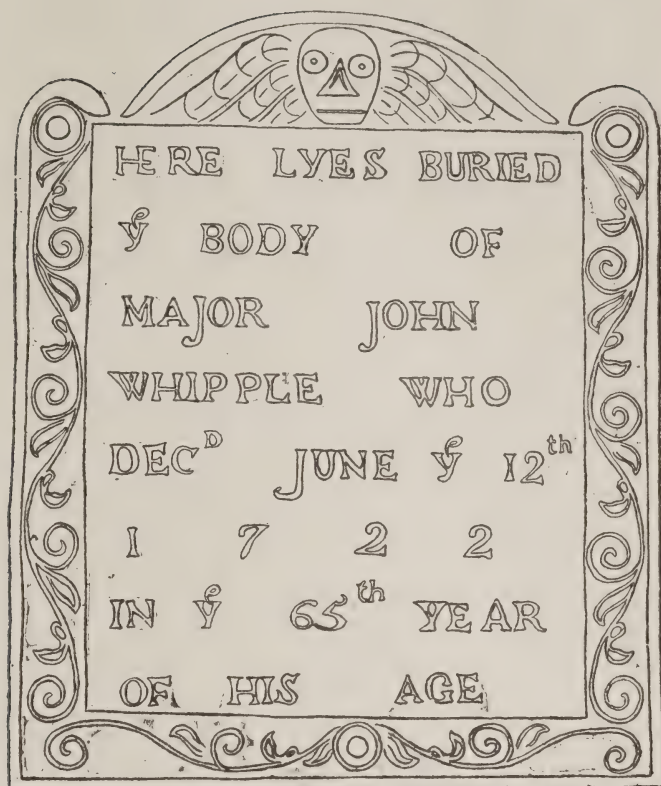 HERE LYES BURIED
yͤ BODY OF
MAJOR JOHN
WHIPPLE WHO
DECᴰ JUNE yͤ 12ᵗʰ
1 7 2 2
IN yͤ 65ᵗʰ YEAR
OF HIS AGE